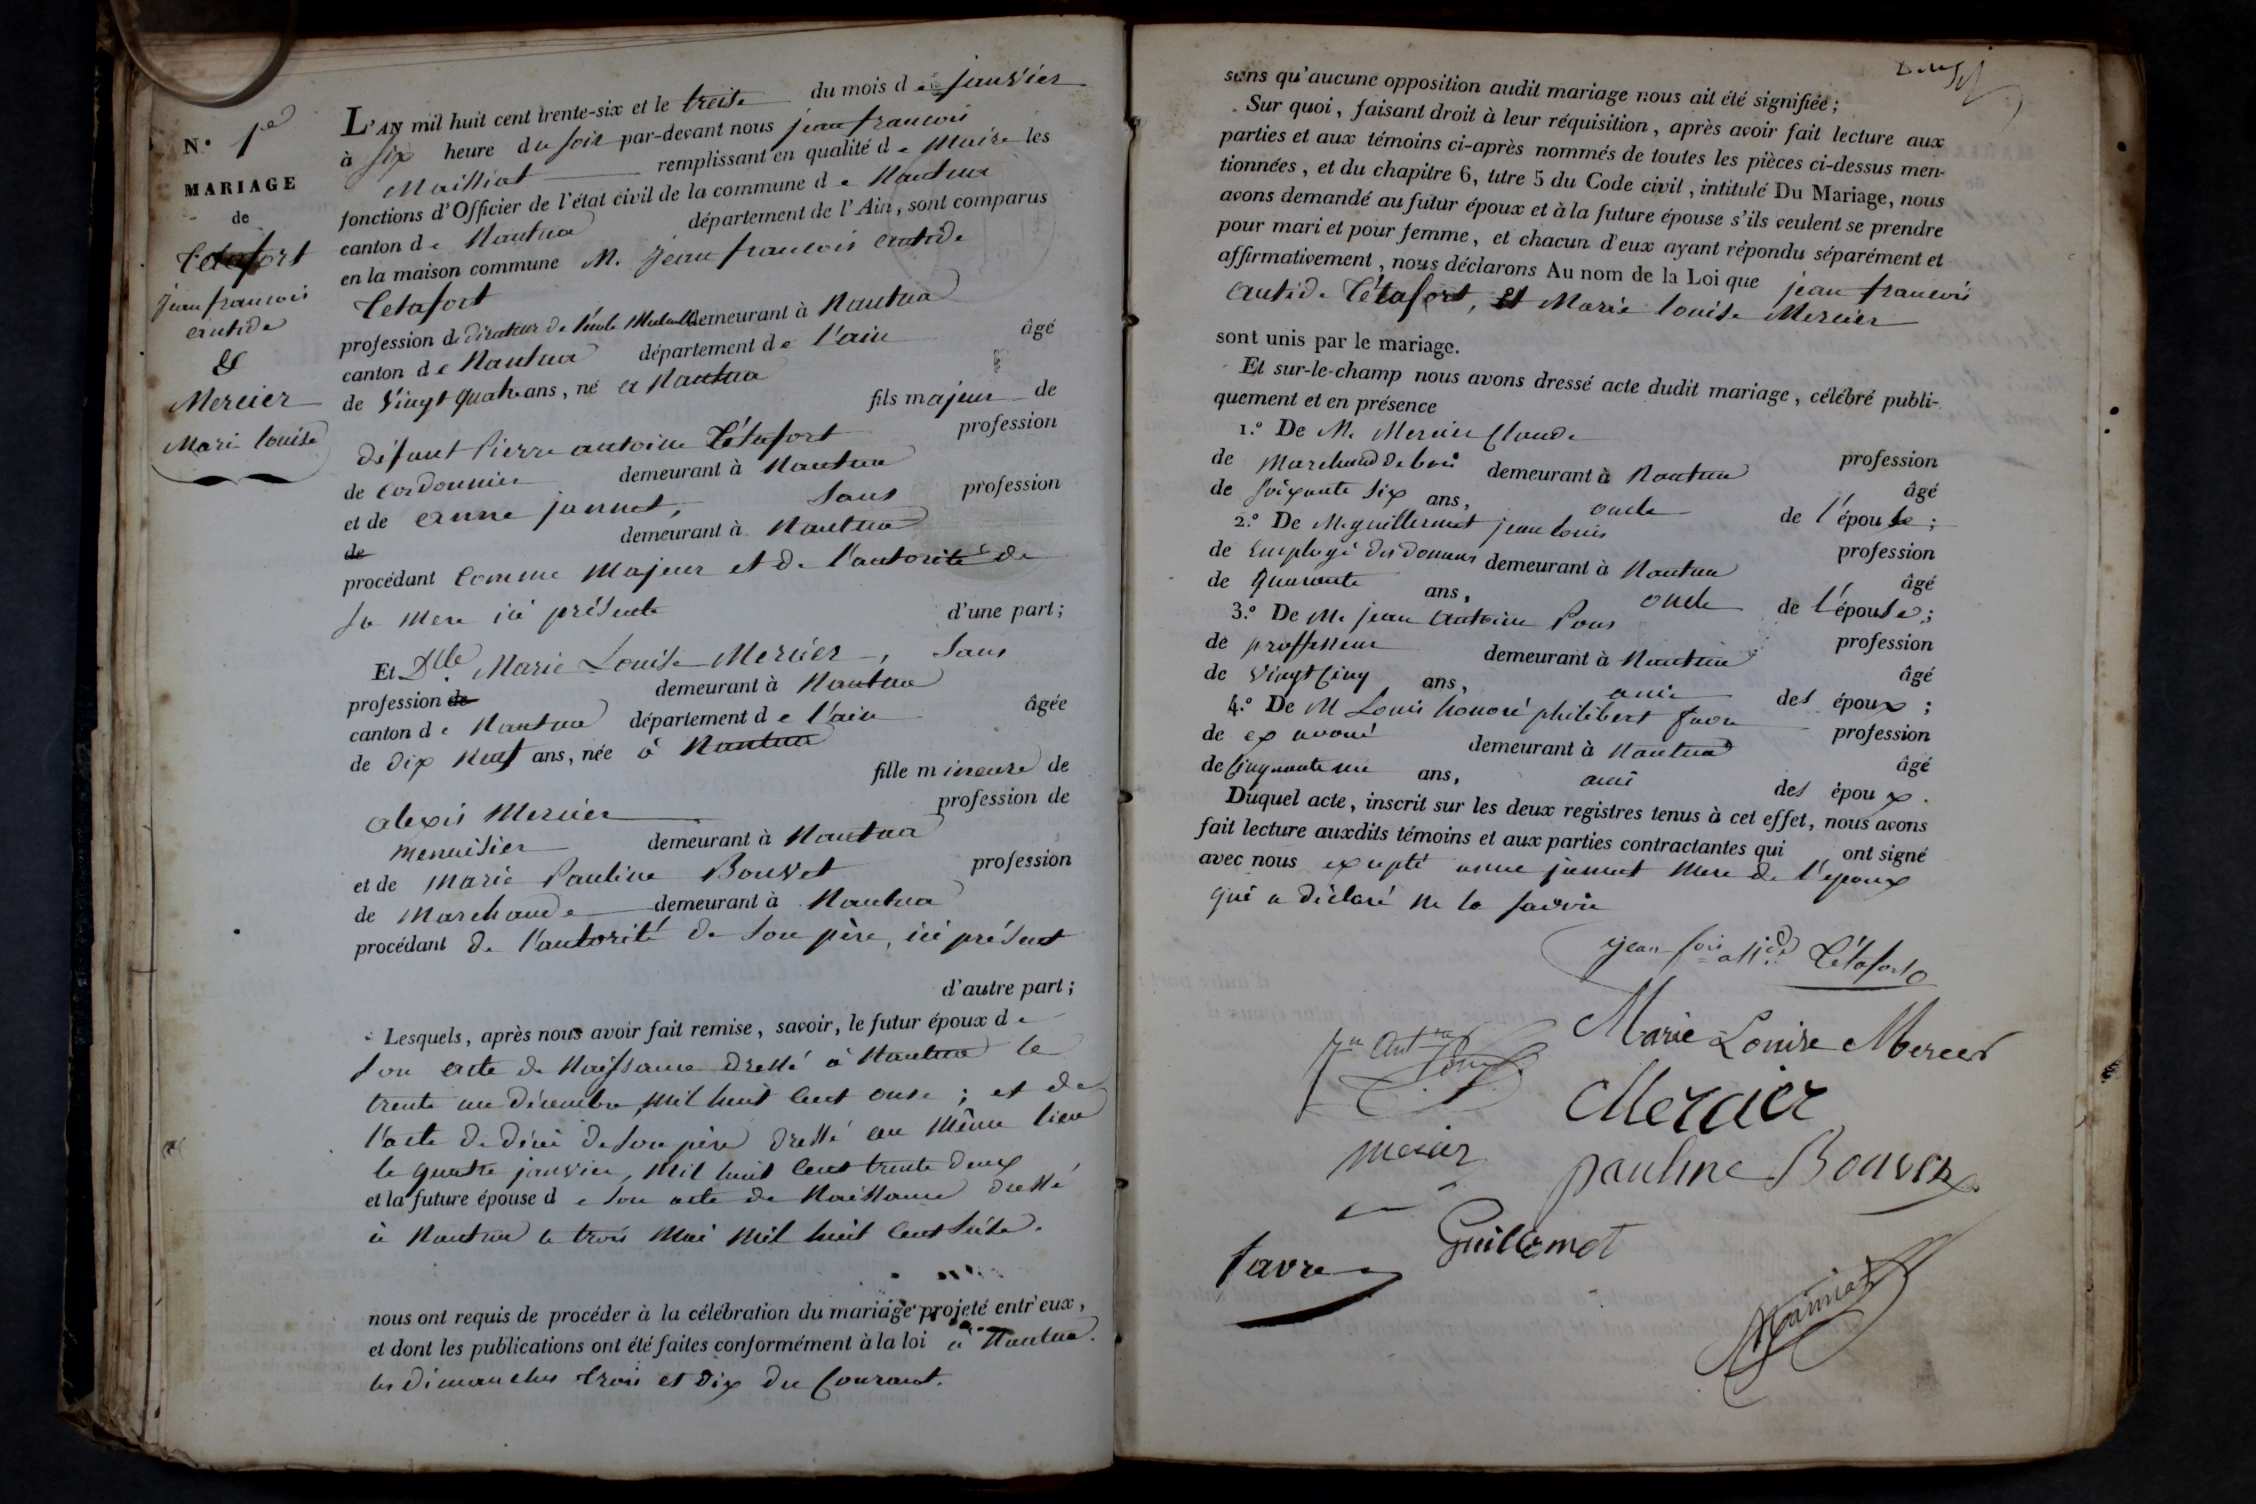 N.º 1er
MARIAGE
de
Tétafort
jean françois
antide
&
Mercier
Marie Louise
L'AN mil huit cent trente-six et le treize du mois de janvier
à six heure du soir par-devant nous jean françois
Mailliat remplissant en qualité de Maire les
fonctions d'Officier de l'état civil de la commune de Nantua
canton de Nantua département de l'Ain, sont comparus
en la maison commune M. jean françois antide
Tétafort
profession de directeur de l'école Mutuelle demeurant à Nantua
canton de Nantua département de l'ain âgé
de Vingt quatre ans, né à Nantua
fils majeur de
défunt Pierre antoine Tétafort profession
de cordonnier demeurant à Nantua
et de anne jannet, sans profession
de demeurant à Nantua
procédant comme Majeur et de l'autorité de
sa Mere ici présente d'une part;
Et Dlle Marie Louise Mercier, sans
profession de demeurant à Nantua
canton de Nantua département de l'ain âgée
de dix Neuf ans, née à Nantua
fille mineure de
alexis Mercier profession de
menuisier demeurant à Nantua
et de Marie Pauline Bouvet profession
de Marchande demeurant à Nantua
procédant de l'autorité de son père, ici présent
d'autre part;
Lesquels, après nous avoir fait remise, savoir, le futur époux de
son acte de Naissance dressé à Nantua le
trente un décembre, mil huit cent onze; et de
l'acte de décès de son père dressé au même lieu
le quatre janvier, mil huit cent trente deux
et la future épouse de son acte de Naissance dressé
à Nantua le trois Mai mil huit cent seize.
nous ont requis de procéder à la célébration du mariage projeté entr'eux,
et dont les publications ont été faites conformément à la loi à Nantua.
les dimanches trois et dix du courant.
sans qu'aucune opposition audit mariage nous ait été signifiée;
Sur quoi, faisant droit à leur réquisition, après avoir fait lecture aux
parties et aux témoins ci-après nommés de toutes les pièces ci-dessus men-
tionnées, et du chapitre 6, titre 5 du Code civil, intitulé Du Mariage, nous
avons demandé au futur époux et à la future épouse s'ils veulent se prendre
pour mari et pour femme, et chacun d'eux ayant répondu séparément et
affirmativement, nous déclarons Au nom de la Loi que jean françois
antide Tétafort, et Marie Louise Mercier
sont unis par le mariage.
Et sur-le-champ nous avons dressé acte dudit mariage, célébré publi-
quement et en présence
1.º De M. Mercier Claude profession
de Marchand de bois demeurant à Nantua âgé
de soixante six ans, oncle de l'épouse;
2.º De M. guillermet jean louis profession
de Employé des douanes demeurant à Nantua âgé
de quarante ans, oncle de l'épouse;
3.º De M. jean antoine Pons profession
de proffesseur demeurant à Nantua âgé
de vingt cinq ans, ami des époux;
4.º De M Louis honoré philibert favre profession
de ex avoué demeurant à Nantua âgé
de cinquante un ans, ami des époux.
Duquel acte, inscrit sur les deux registres tenus à cet effet, nous avons
fait lecture auxdits témoins et aux parties contractantes qui ont signé
avec nous excepté anne jannet Mere de l'époux
qui a déclaré ne le savoir
jean fois atide Tétafort
Marie Louise Mercier
jn antne Pons
Mercier
mercier
pauline Bouvet
Guillermet
favre
Mailliat